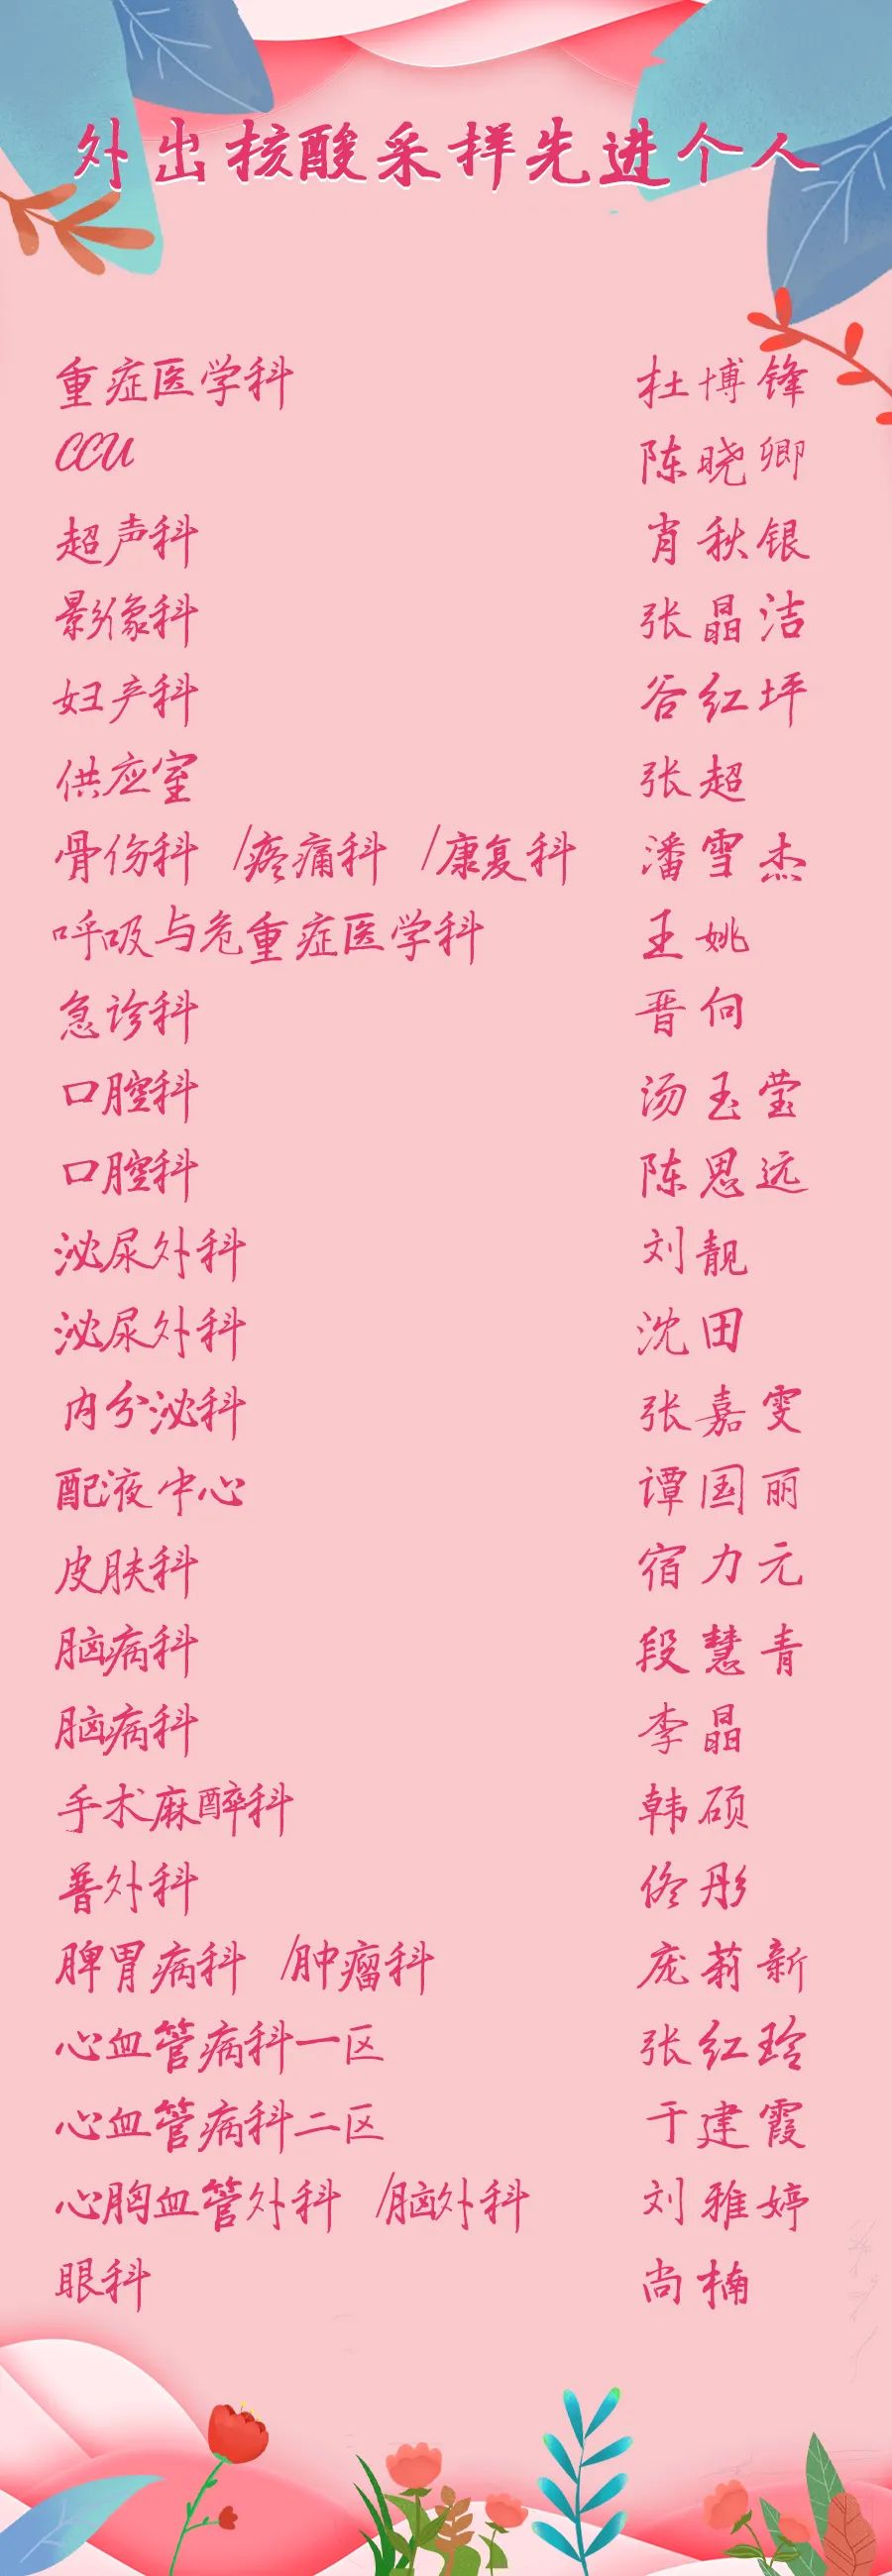 外出核酸采样先进个人
重症医学科 杜博锋
CCU 陈晓卿
超声科 肖秋银
影像科 张晶洁
妇产科 谷红坪
供应室 张超
骨伤科 /疼痛科 /康复科 潘雪杰
呼吸与危重症医学科 王姚
急诊科 晋何
口腔科 汤玉莹
口腔科 陈思远
泌尿外科 刘靓
泌尿外科 沈田
内分泌科 张嘉雯
配液中心 谭国丽
皮肤科 宿力元
脑病科 段慧青
脑病科 李晶
手术麻醉科 韩硕
普外科 佟彤
脾胃病科 /肿瘤科 庞莉新
心血管病科一区 张红玲
心血管病科二区 于建霞
心胸血管外科 /脑外科 刘雅婷
眼科 尚楠